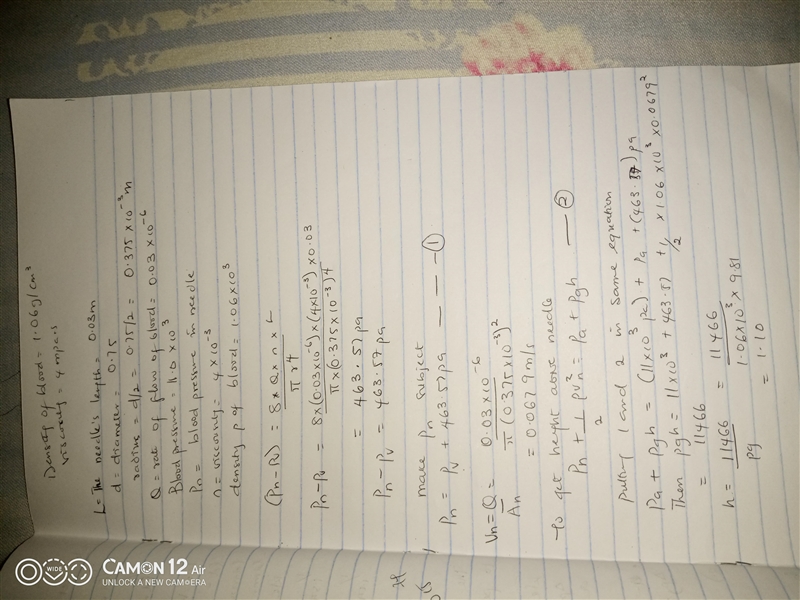 Density of blood = 1.06g/cm³
Viscosity = 4 mpa.s
L = The needle's length = 0.03m
d = diameter = 0.75
radius = d/2 = 0.75/2 = 0.375 x 10⁻³ m
Q = rate of flow of blood = 0.03 x 10⁻⁶
Blood pressure = 11.0 x 10³
Pn = blood pressure in needle
n = viscosity = 4 x 10⁻³
density ρ of blood = 1.06 x 10³
(Pn - Pv) = 8 x Q x n x L
πr4
Pn - Pv = 8 x (0.03 x 10⁻⁶) x (4 x 10⁻³) x 0.03
π x (0.375 x 10⁻³)4
= 463.57 pa
Pn - Pv = 463.57 pa
make Pn subject
Pn = Pv + 463.57 pa — — - ①
Vn = Q = 0.03 x 10⁻⁶
An π (0.375 x 10⁻³)²
= 0.0679 m/s
to get height above needle
Pn + 1/2 ρv²n = Pa + ρgh — ②
putting 1 and 2 in same equation
Pa + ρgh = (11 x 10³ pa) + Pa + (463.57) pa
Then ρgh = 11 x 10³ + 463.57 + 1/2 x 1.06 x 10³ x 0.0679²
= 11466
h = 11466 = 11466
ρg 1.06 x 10³ x 9.81
= 1.10
WIDE
CAMON 12 Air
UNLOCK A NEW CAM<RA